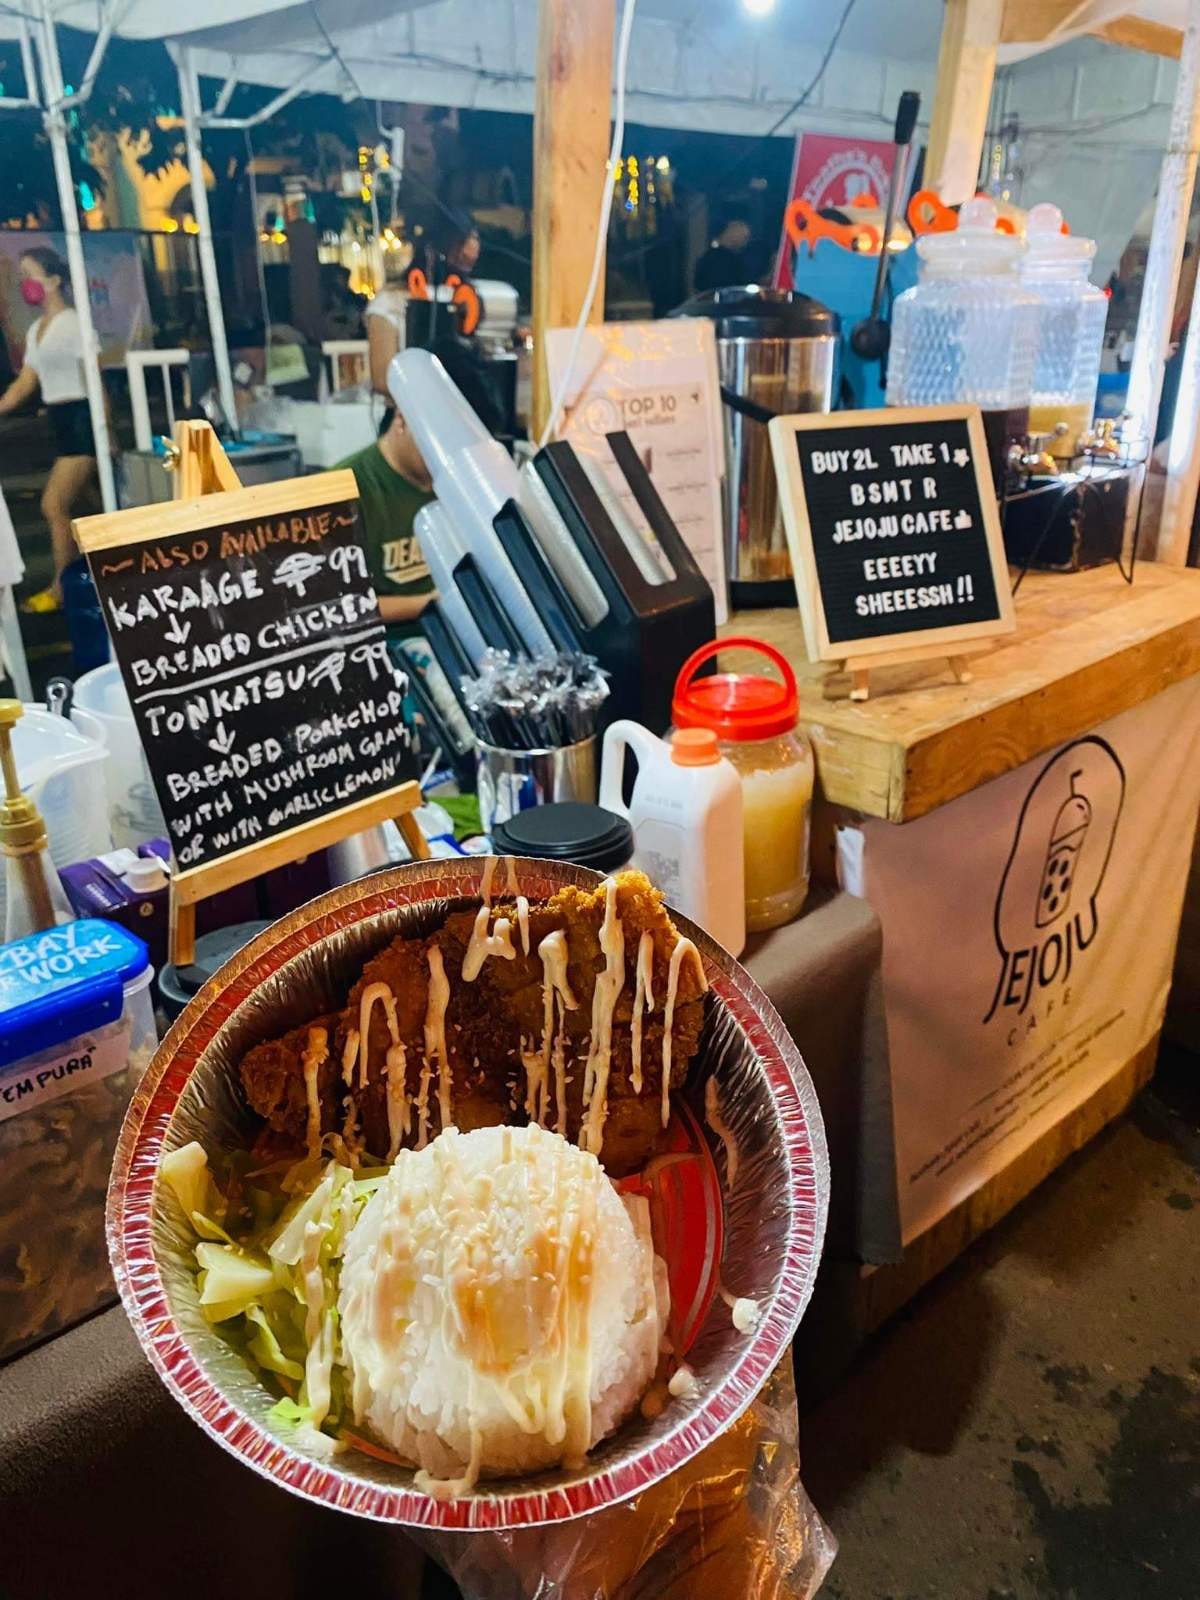 ~ALSO AVAILABLE~
KARAAGE ₱99
BREADED CHICKEN
TONKATSU ₱99
BREADED PORKCHOP
WITH MUSHROOM GRAVY
OR WITH GARLIC LEMON
TOP 10
BUY 2L TAKE 1
BSMT R
JEJOJU CAFE
EEEEYY
SHEEESSH!!
DEAD
BAY
WORK
TEMPURA
JEJOJU
CAFE